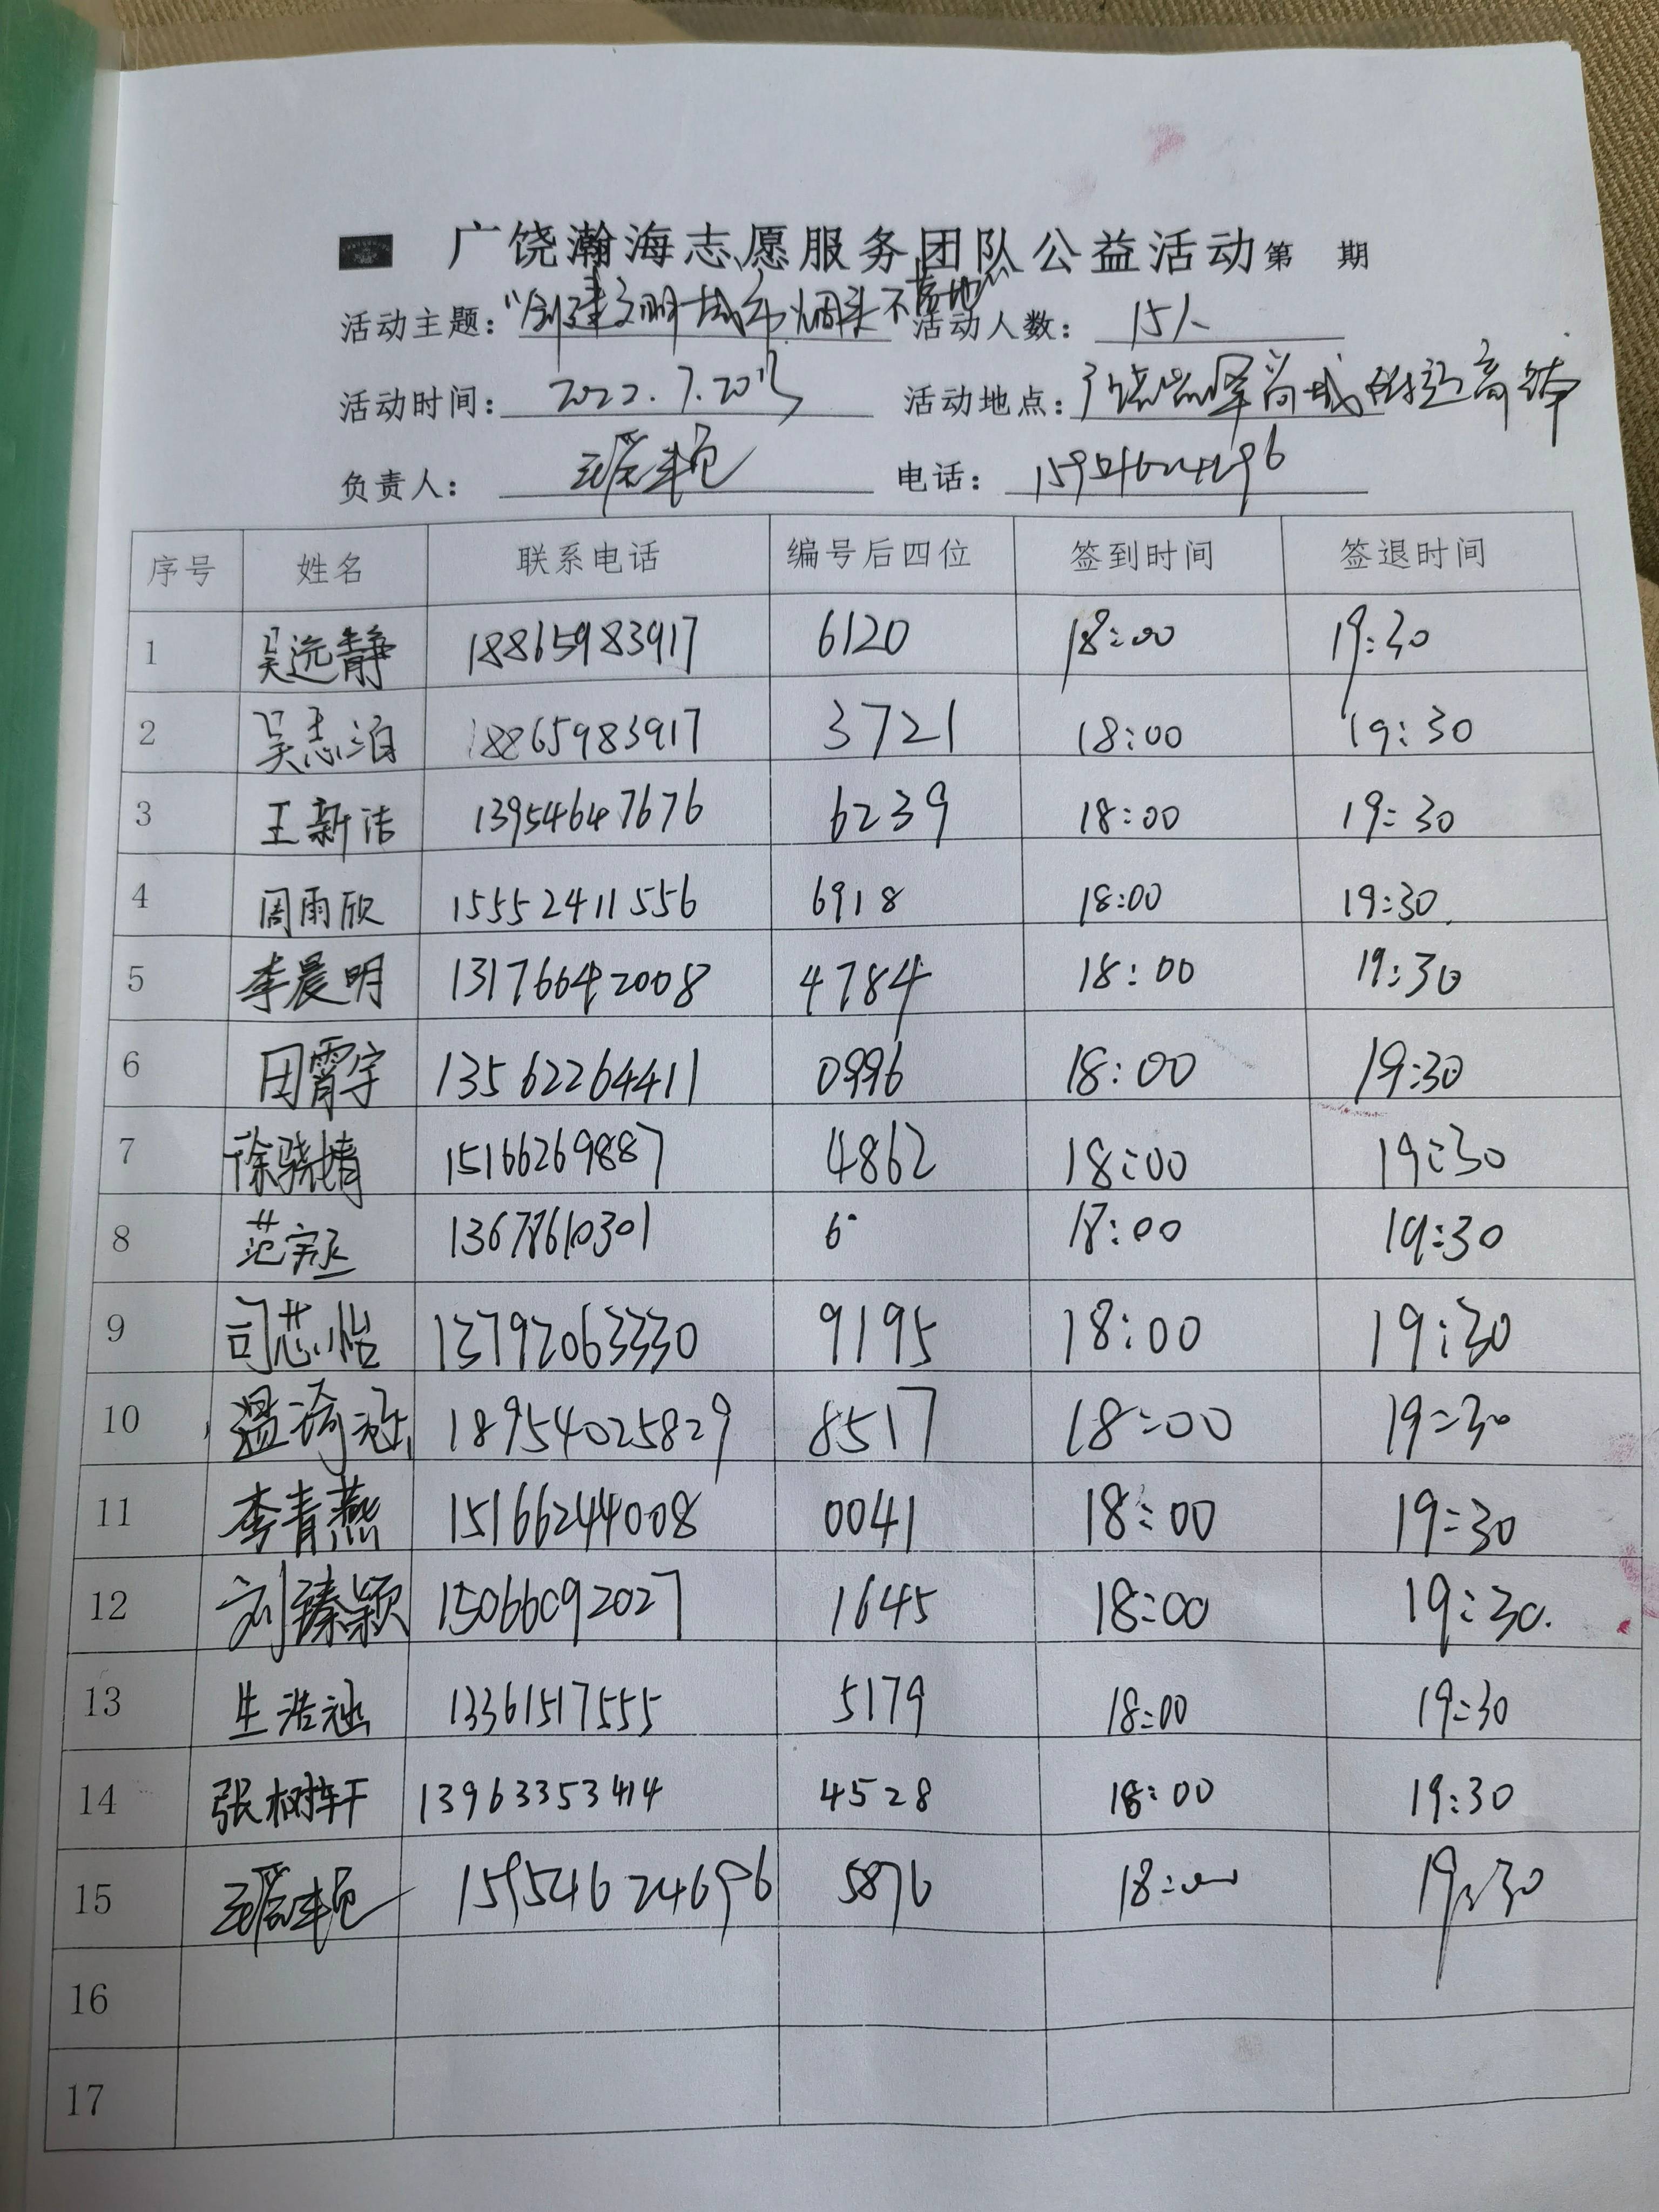 广饶瀚海志愿服务团队公益活动第 期
活动主题："创建文明城市烟头不落地" 活动人数： 15人
活动时间： 2022.7.20 活动地点：广饶 尚城附近
负责人： 电话：
序号 姓名 联系电话 编号后四位 签到时间 签退时间
1 吴远静 18865983917 6120 18:00 19:30
2 吴志泊 18865983917 3721 18:00 19:30
3 王新洁 13954647676 6239 18:00 19:30
4 周雨欣 15552411556 6918 18:00 19:30
5 李晨明 13176642008 4784 18:00 19:30
6 田霄宇 13562264411 0996 18:00 19:30
7 徐骁婧 15166269887 4862 18:00 19:30
8 范宸丞 13678610301 6 18:00 19:30
9 司芯怡 13792063330 9195 18:00 19:30
10 温琦冠 18954025829 8517 18:00 19:30
11 李青燕 15166244008 0041 18:00 19:30
12 刘臻颖 15066092027 1645 18:00 19:30.
13 生浩涵 13361517555 5179 18:00 19:30
14 张树轩 13963353414 4528 18:00 19:30
15 15954624696 5876 18:00 19:30
16
17